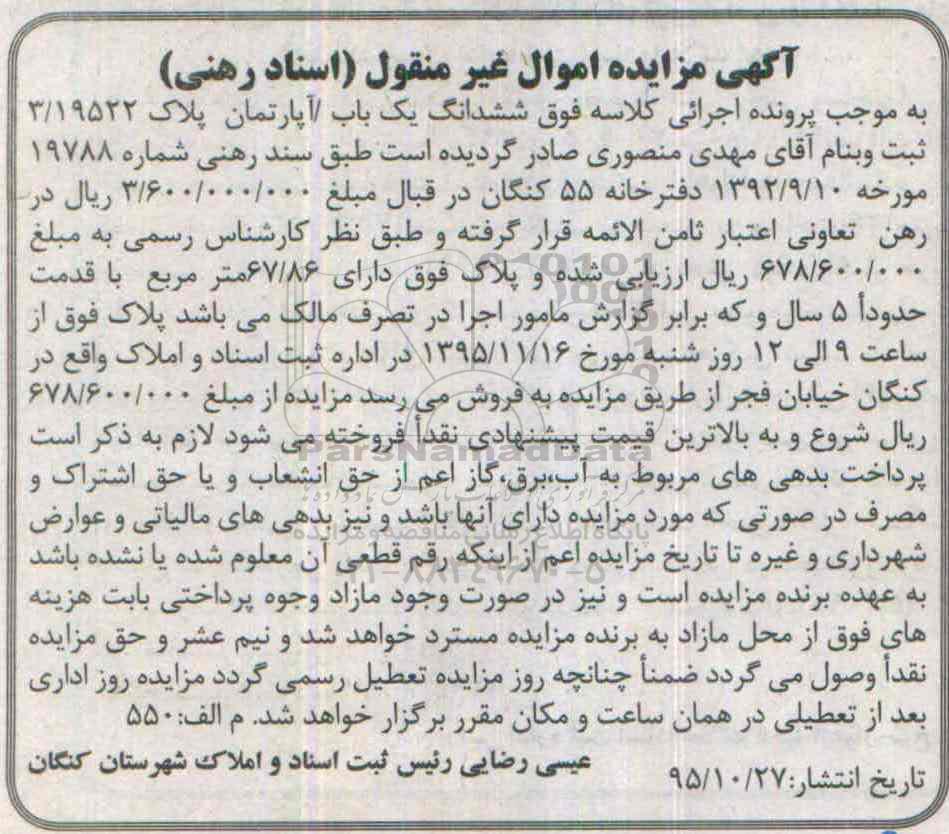 آگهی مزایده اموال غیر منقول (اسناد رهنی)
به موجب پرونده اجرائی کلاسه فوق ششدانگ یک باب /آپارتمان پلاک ۳/۱۹۵۲۲
ثبت وبنام آقای مهدی منصوری صادر گردیده است طبق سند رهنی شماره ۱۹۷۸۸
مورخه ۱۳۹۲/۹/۱۰ دفترخانه ۵۵ کنگان در قبال مبلغ ۳/۶۰۰/۰۰۰/۰۰۰ ریال در
رهن تعاونی اعتبار ثامن الائمه قرار گرفته و طبق نظر کارشناس رسمی به مبلغ
۶۷۸/۶۰۰/۰۰۰ ریال ارزیابی شده و پلاک فوق دارای ۶۷/۸۶متر مربع با قدمت
حدوداً ۵ سال و که برابر گزارش مامور اجرا در تصرف مالک می باشد پلاک فوق از
ساعت ۹ الی ۱۲ روز شنبه مورخ ۱۳۹۵/۱۱/۱۶ در اداره ثبت اسناد و املاک واقع در
کنگان خیابان فجر از طریق مزایده به فروش می رسد مزایده از مبلغ ۶۷۸/۶۰۰/۰۰۰
ریال شروع و به بالاترین قیمت پیشنهادی نقداً فروخته می شود لازم به ذکر است
ParsNamadData
پرداخت بدهی های مربوط به آب،برق،گاز اعم از حق انشعاب و یا حق اشتراک و
مصرف در صورتی که مورد مزایده دارای آنها باشد و نیز بدهی های مالیاتی و عوارض
پایگاه اطلاع رسانی مناقصه و مزایده
شهرداری و غیره تا تاریخ مزایده اعم از اینکه رقم قطعی آن معلوم شده یا نشده باشد
به عهده برنده مزایده است و نیز در صورت وجود مازاد وجوه پرداختی بابت هزینه
های فوق از محل مازاد به برنده مزایده مسترد خواهد شد و نیم عشر و حق مزایده
نقداً وصول می گردد ضمناً چنانچه روز مزایده تعطیل رسمی گردد مزایده روز اداری
بعد از تعطیلی در همان ساعت و مکان مقرر برگزار خواهد شد. م الف:۵۵۰
عیسی رضایی رئیس ثبت اسناد و املاک شهرستان کنگان
تاریخ انتشار:۹۵/۱۰/۲۷